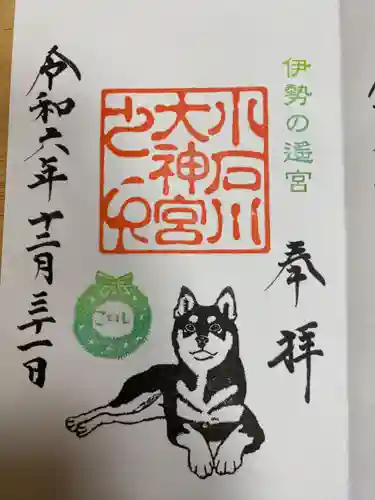 伊勢の遥宮
奉拝
小石川
大神宮
之印
令和六年十二月三十一日